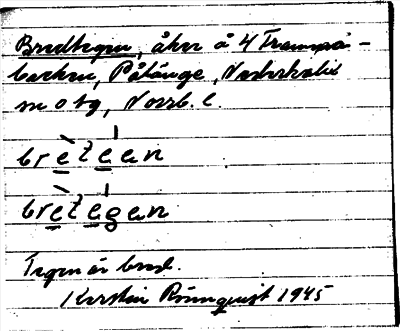 Bredtegen, åker å 4 Tranmyrå-
backen, Påläng, Nederkalix
sn o tg, Norrb. l.
bretean
bretegan
Tegen är bred.
Kerstin Rönnquist 1945